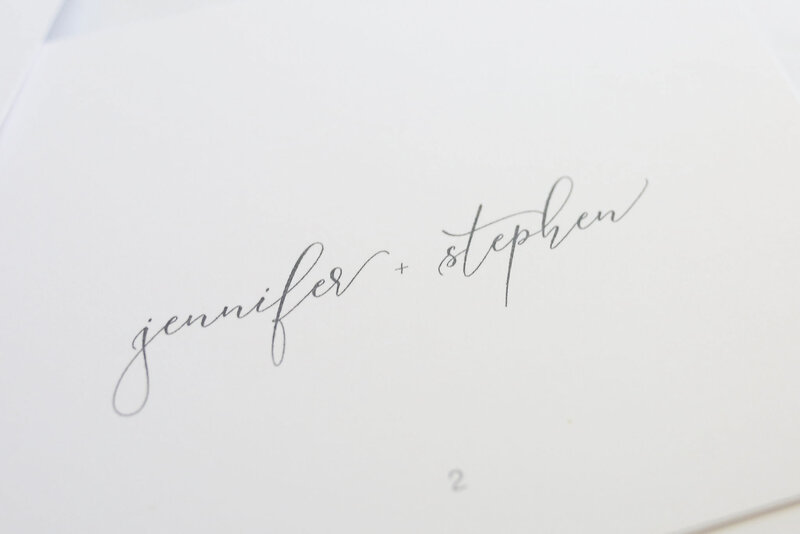 jennifer + stephen
2